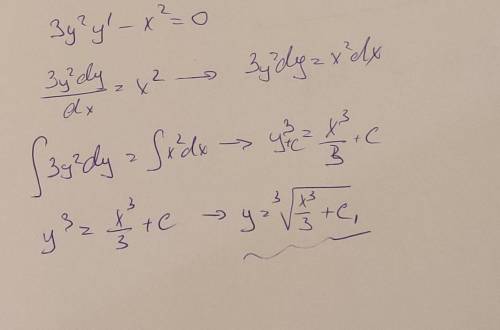 3y²y' - x² = 0
3y²dy/dx = x² → 3y²dy = x²dx
∫3y²dy = ∫x²dx → y³+c = x³/3 + c
y³ = x³/3 + c → y = ³√(x³/3 + c₁)